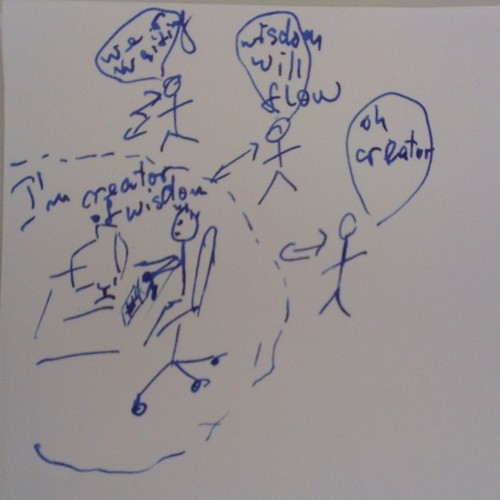 we r
waiting
wisdom
will
flow
oh
creator
I'm creator
of wisdom